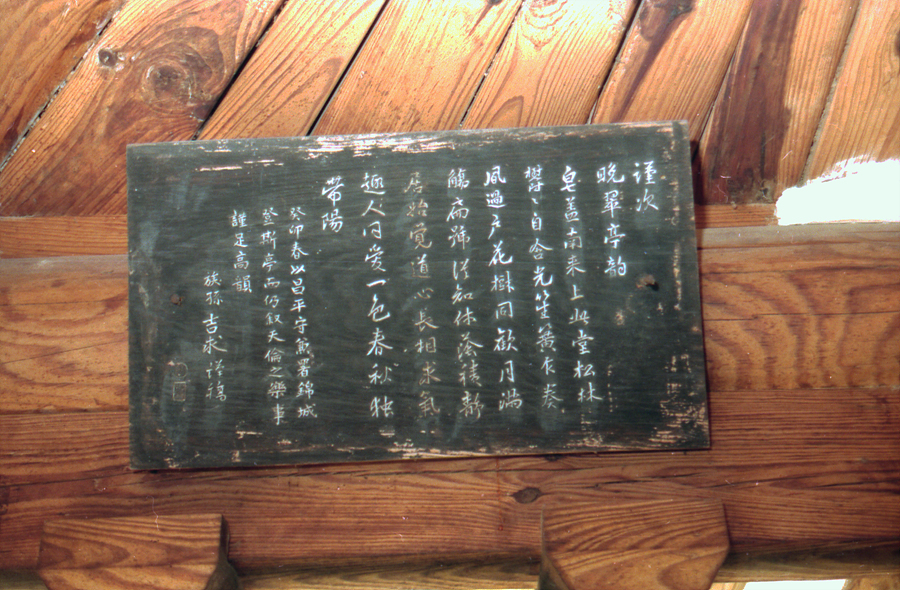 謹次
晩翠亭韵
皂盖南来上此堂松林
欝〻自含光笙簧衣奏
風過戶花樹同歡月滿
觴扁號從知休蔭積新
居始覚道心長相求氣
趣人何愛一色春秋独
帶陽
癸卯春以昌平守兼署錦城
登斯亭而仍叙天倫之樂事
謹足高韻
族孫 吉求 謹稿